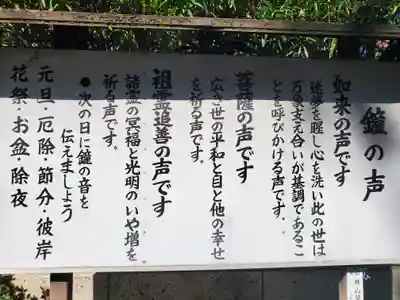 鐘の声
如来の声です
迷夢を醒し心を洗い此の世は
万象支え合いが基調であるこ
とを呼びかける声です。
菩薩の声です
広き世の平和と自と他の幸せ
を祈る声です。
祖霊追善の声です
諸霊の冥福と光明のいや増を
祈る声です。
●次の日に鐘の音を
伝えましよう
元旦・厄除・節分・彼岸
花祭・お盆・除夜